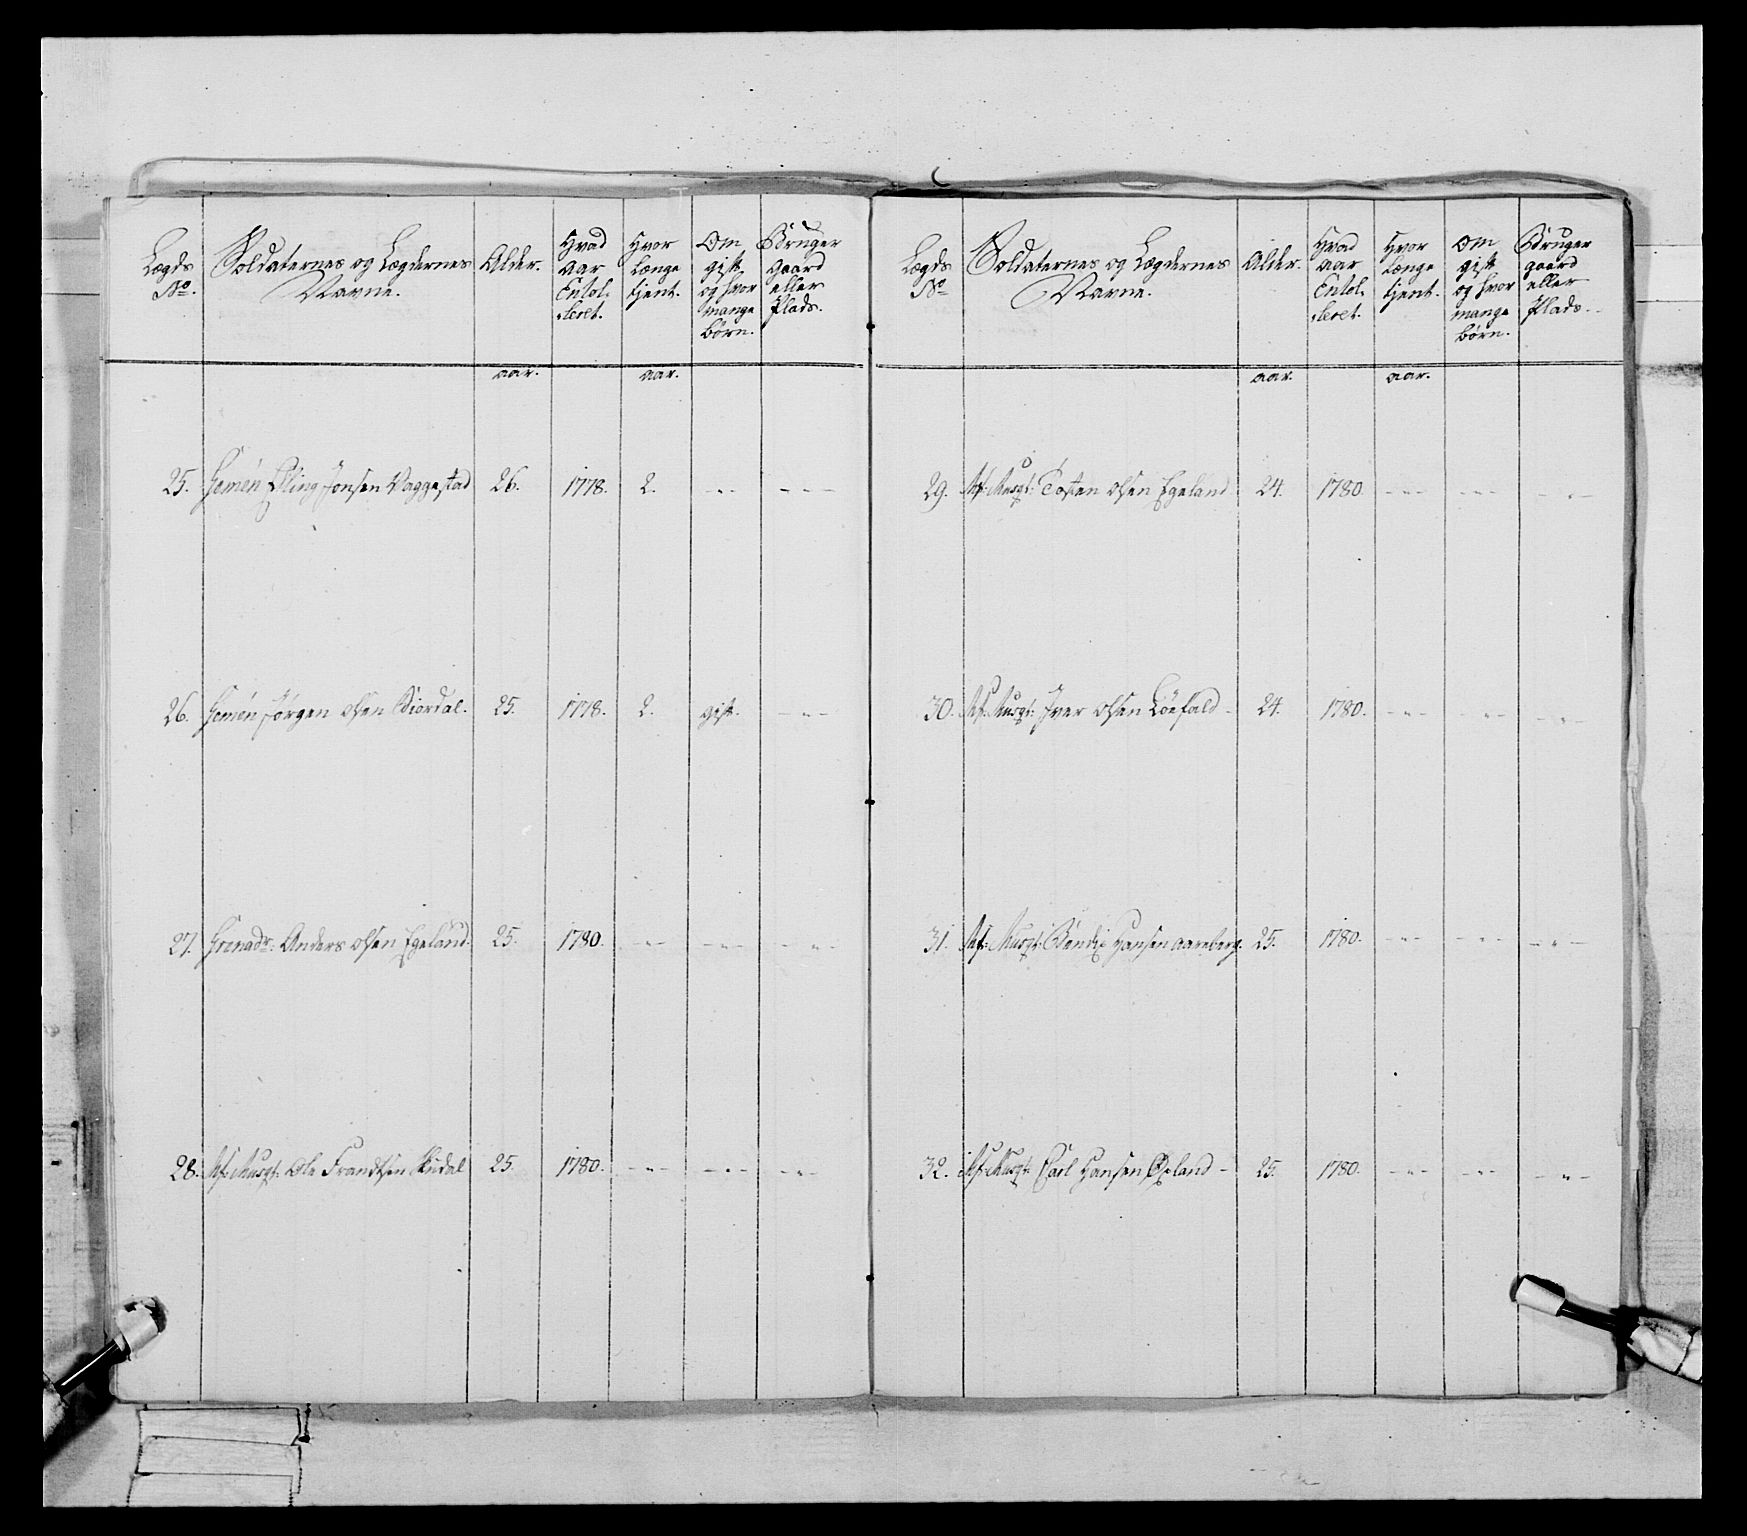 Lægds No. | Soldaternes og Lægdernes Navne. | Alder. | Hvad aar Enrol-leret. | Hvor Længe tjent. | Om gift og hvor mange børn. | Bruger gaard eller Plads.
aar. | aar.
25. Gemēn Elling Jonsen Vaggestad | 26. | 1778. | 2. | - - - | - - - -
26. Gemēn Jørgen Olsen Diordal. | 25. | 1778. | 2. | gift. | - " -
27. Grenadr: Anders Olsen Egeland. | 25. | 1780. | - " - | - " - | - " -
28. Musqt: Ole Frandtsen | 25. | 1780. | - " - | - " - | - " -
Lægds No | Soldaternes og Lægdernes Navne. | Alder. | Hvad aar Enrol-leret. | Hvor Længe tjent. | Om gift og hvor mange børn. | Bruger gaard eller Plads.
aar. | aar.
29. Musqt: Tosten Olsen Egeland | 24. | 1780. | - " - | - " - | - " -
30. Musqt: Iver Olsen | 24. | 1780. | - " - | - " - | - " -
31. Musqt: Bendix Hansen Aareberg. | 25. | 1780. | - " - | - " - | - " -
32. Musqt: Carl Hansen | 25. | 1780. | - " - | - " - | - " -